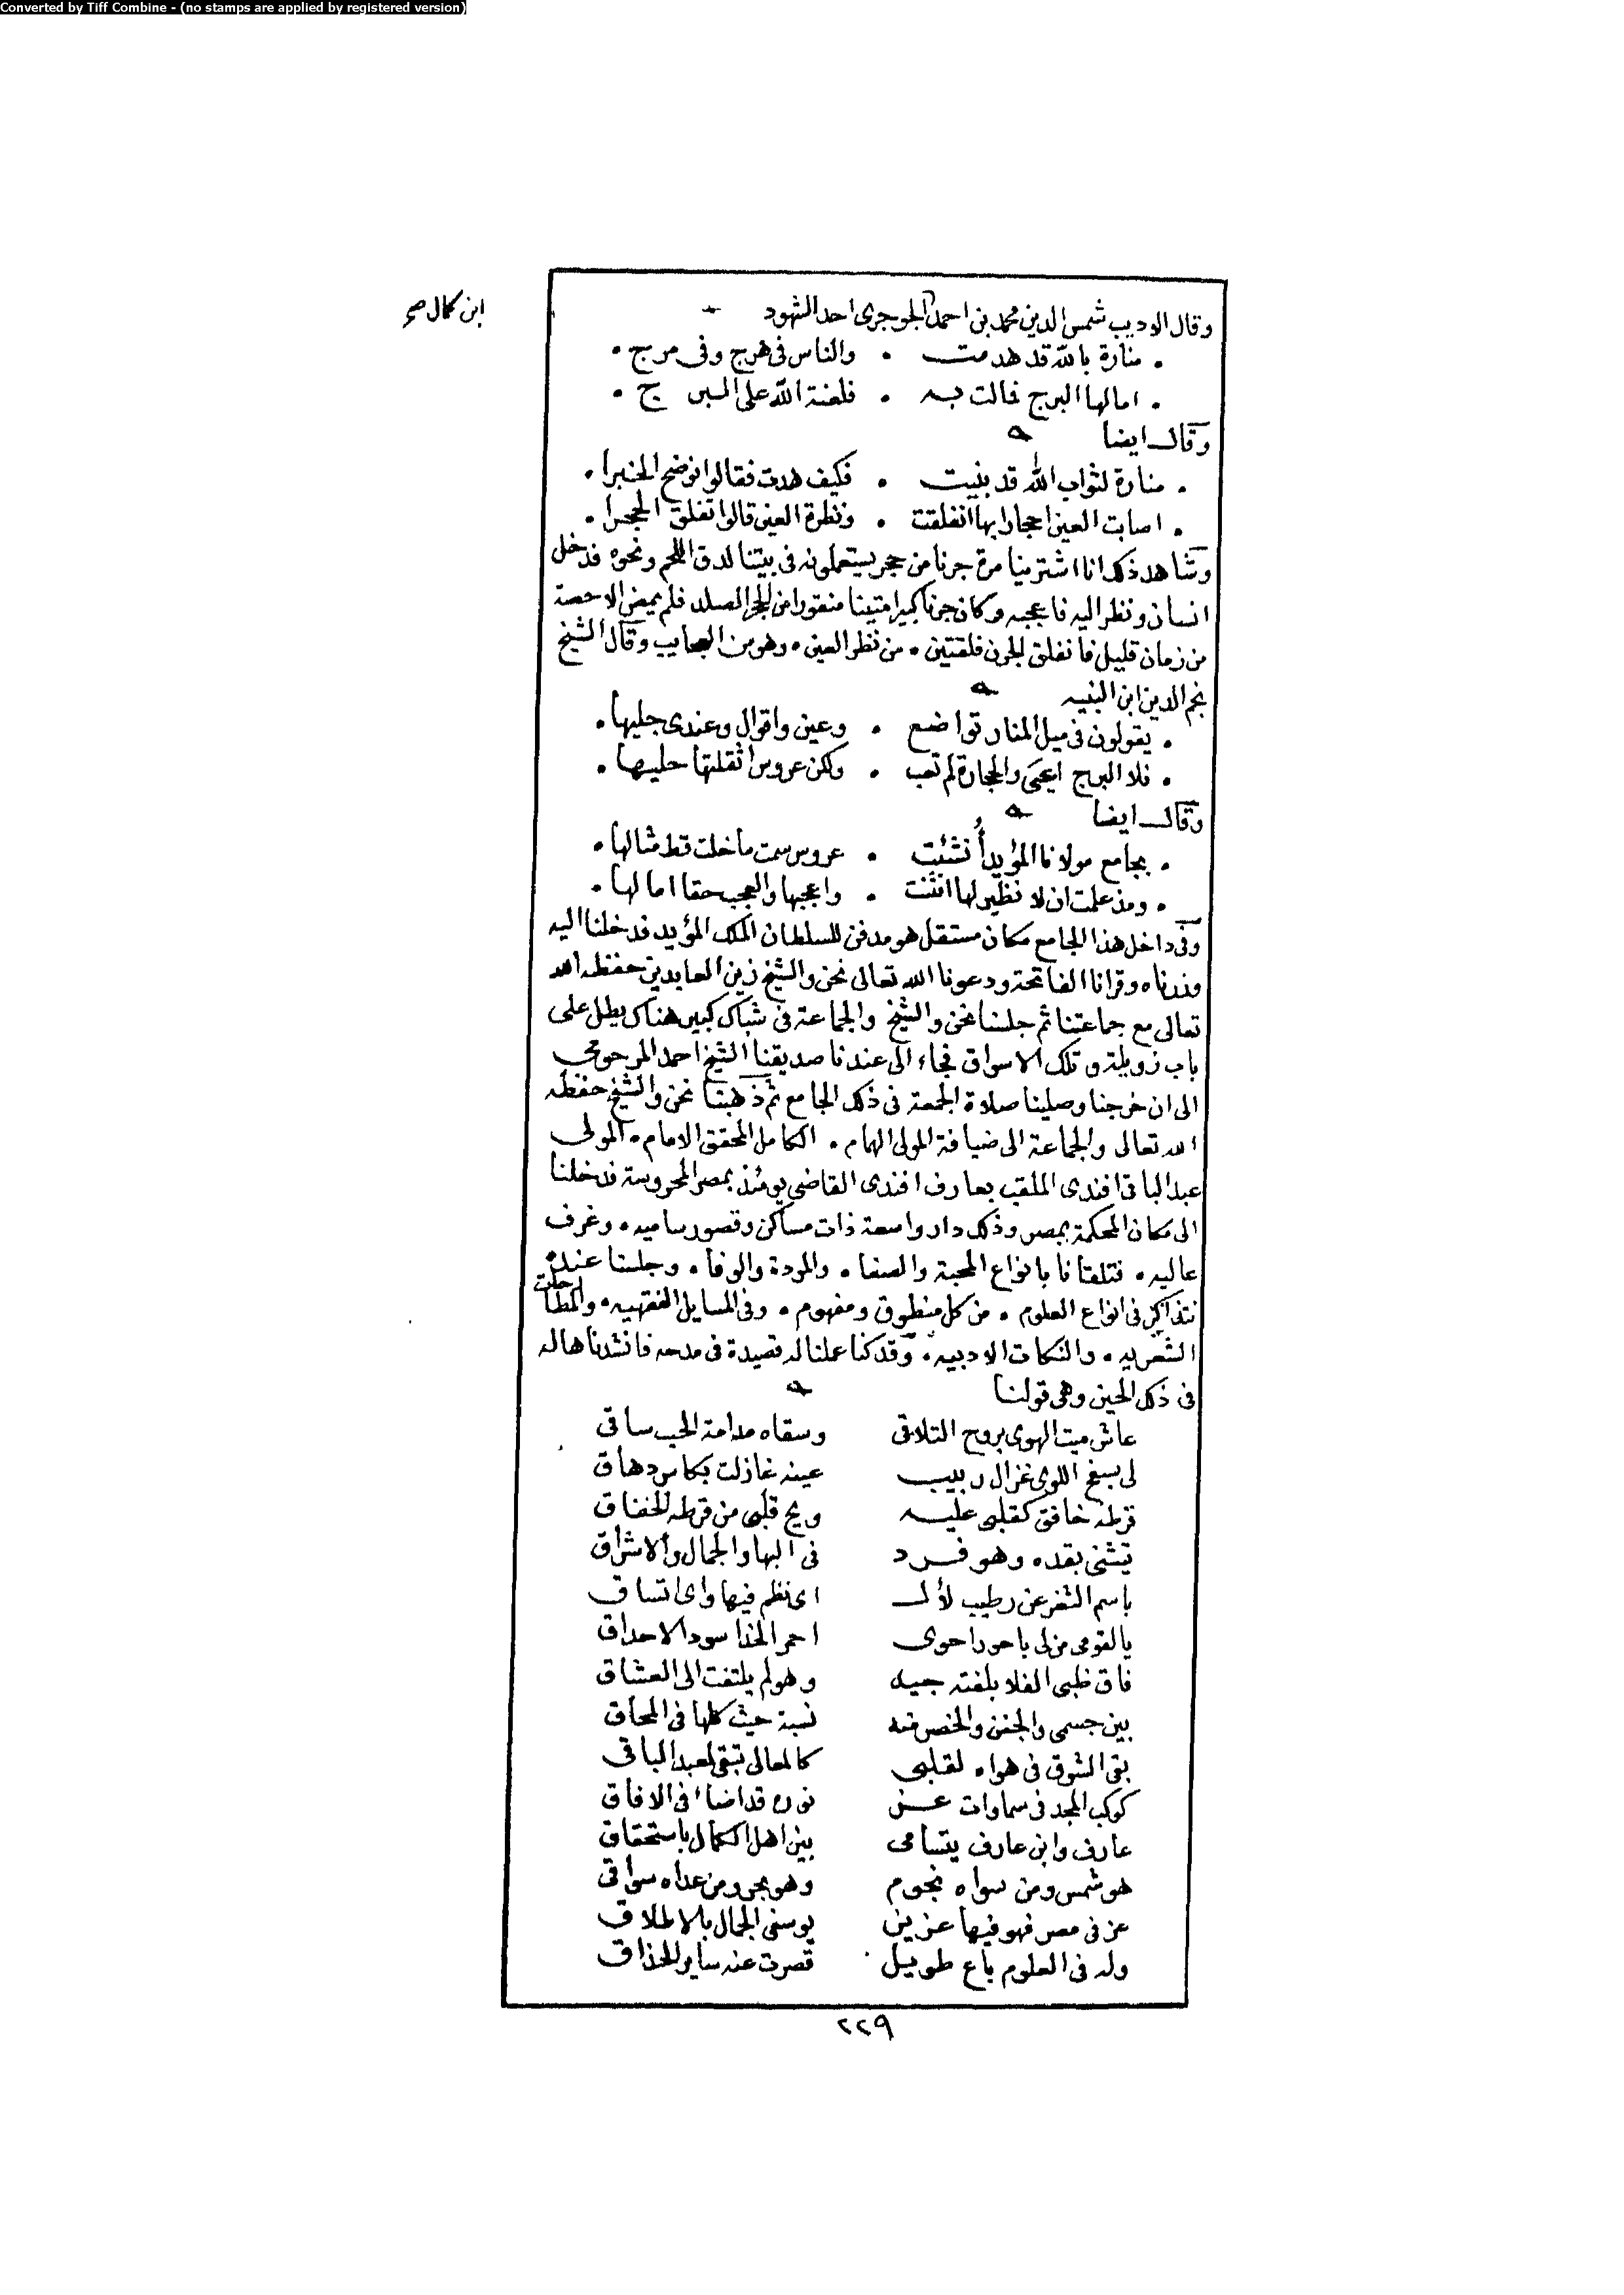 Converted by Tiff Combine - (no stamps are applied by registered version)
ابن كمال صح
وقال الاديب شمس الدين محمد بن احمد الجوجرى احد الشهود
منارة بالله قد هدمت • والناس فى هرج وفى مرج •
امالها البرج فمالت به • فلعنة الله على البرج •
وقال ايضا
منارة لثواب الله قد بنيت • فكيف هدت فقالوا نوضح الخبرا •
اصابت العين احجارا بها انفلقت • ونظرة العين قالوا تفلق الحجرا •
وشاهد ذلك انا اشترينا مرة جرنا من حجر يستعملونه فى بيتنا لدق اللحم ونحوه فدخل
انسان ونظر اليه فاعجبه وكان جرنا كبيرا متينا منقورا من الحجر الصلد فلم يمض الا حصة
من زمان قليل فانفلق الجرن فلقتين • من نظر العين • وهو من العجايب وقال الشيخ
نجم الدين ابن النبيه
يقولون فى ميل المنار تواضع • وعين واقوال وعندى جليها •
فلا البرج اعيى والحجارة لم تعب • ولكن عروس اثقلتها حليها •
وقال ايضا
بجامع مولانا المؤيد أُنشئت • عروس سمت ما خلت قط مثالها •
ومذ علمت ان لا نظير لها انثنت • واعجبها والعجب حقا امالها •
وفى داخل هذا الجامع مكان مستقل هو مدفن للسلطان الملك المؤيد فدخلنا اليه
وزرناه وقرانا الفاتحة ودعونا الله تعالى نحن والشيخ زين العابدين حفظه الله
تعالى مع جماعتنا ثم جلسنا نحن والشيخ والجماعة فى شباك كبير هناك يطل على
باب زويلة وتلك الاسواق فجاء الى عندنا صديقنا الشيخ احمد المرحومى
الى ان خرجنا وصلينا صلاة الجمعة فى ذلك الجامع ثم ذهبنا نحن والشيخ حفظه
الله تعالى والجماعة الى ضيافة المولى الهمام • الكامل المحقق الامام • المولى
عبد الباقى افندى الملقب بعارف افندى القاضى يومئذ بمصر المحروسة فدخلنا
الى مكان المحكمة بمصر وذلك دار واسعة ذات مساكن وقصور ساميه • وغرف
عاليه • فتلقانا بانواع المحبة والصفا • والمودة والوفا • وجلسنا عنده
نتذاكر فى انواع العلوم • من كل منطوق ومفهوم • وفى المسايل الفقهيه • والمطارحات
الشعريه • والنكات الادبيه • وقد كنا عملنا له قصيدة فى مدحه فانشدناها له
فى ذلك الحين وهى قولنا
عاش ميت الهوى بروح التلاقى وسقاه مدامة الحب ساقى
لى بسفح اللوى غزال ربيب عينه غازلت بكاس دهاق
قرطه خافق كقلبى عليه ويح قلبى من قرطه الخفاق
يتثنى بقده وهو فرد فى البها والجمال والاشراق
باسم الثغر عن رطيب لأل اى نظم فيها واى اتساق
يا لقومى من لى باحور احوى احمر الخد اسود الاحداق
فاق ظبى الفلا بلفتة جيد وهو لم يلتفت الى العشاق
بين جسمى والجفن والخصر منه نسبة حيث كلها فى المحاق
بقى الشوق فى هواه لقلبى كالمعالى تبقى لعبد الباقى
كوكب المجد فى سماوات عز نوره قد اضاء فى الافاق
عارف وابن عارف يتسامى بين اهل الكمال باستحقاق
هو شمس ومن سواه نجوم وهو بحر ومن عداه سواقى
عز فى مصر فهو فيها عزيز يوسفى الجمال بالاطلاق
وله فى العلوم باع طويل قصرت عنه ساير الحذاق
٢٢٩